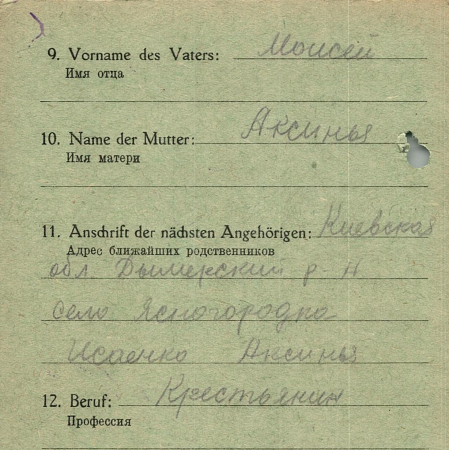 9. Vorname des Vaters: Моисей
Имя отца
10. Name der Mutter: Аксинья
Имя матери
11. Anschrift der nächsten Angehörigen: Киевская
Адрес ближайших родственников
обл. Дымерский р-н
село Ясногородка
Исаенко Аксинья
12. Beruf: Крестьянин
Профессия